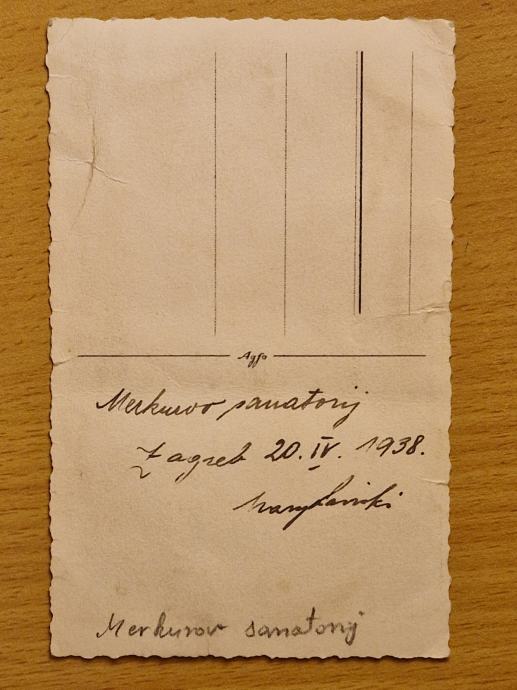 Agfa
Merkurov sanatorij
Zagreb 20. IV. 1938.
Merkurov sanatorij